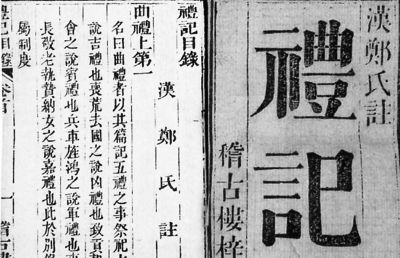 漢鄭氏註
禮記
稽古樓梓
禮記目錄
漢鄭氏註
曲禮上第一
名曰曲禮者以其篇記五禮之事祭祀之
說吉禮也喪荒去國之說凶禮也致貢朝
會之說賓禮也兵車旌鴻之說軍禮也事
長敬老執贄納女之說嘉禮也此於別錄
屬制度
禮記目錄